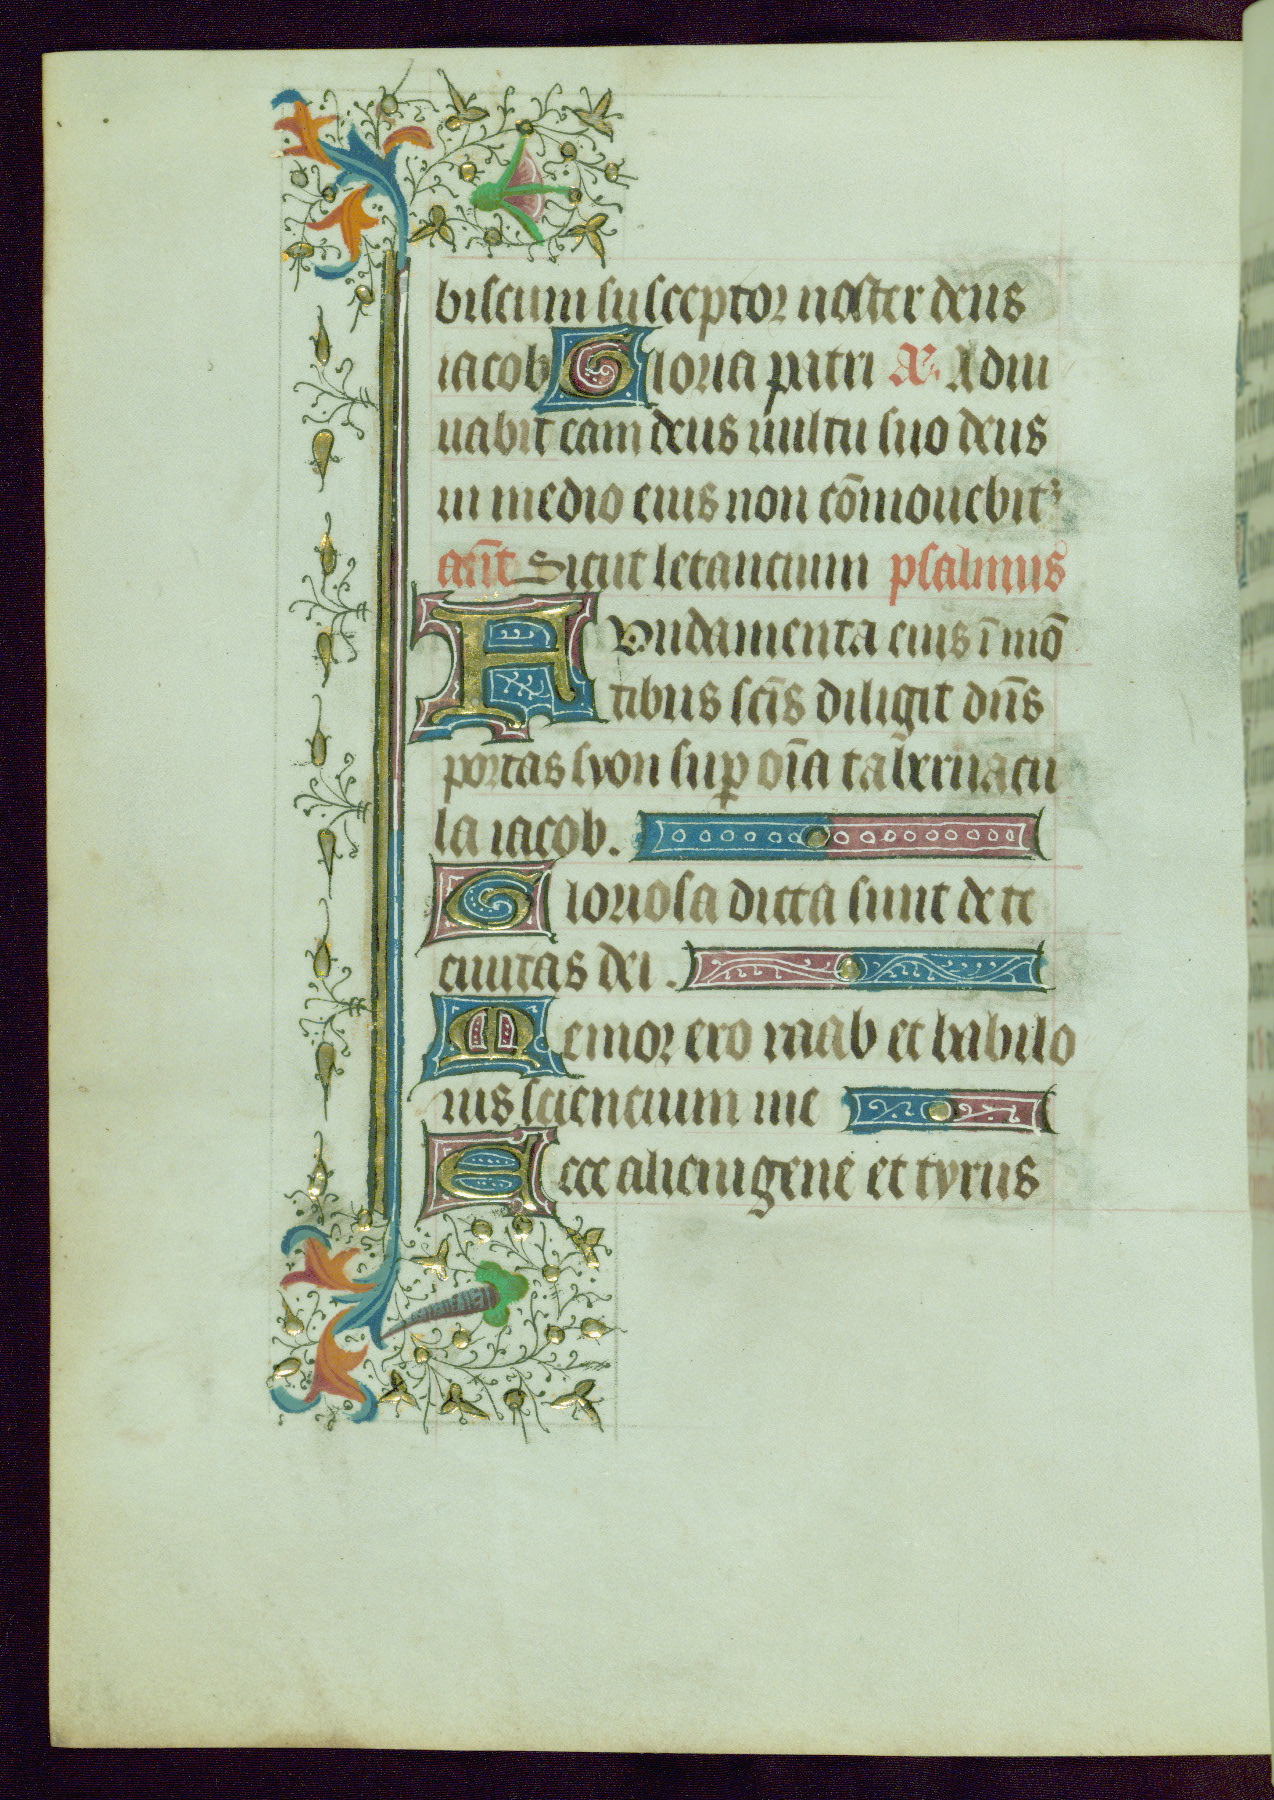 biscum susceptor noster deus
iacob Gloria patri A. Adiu
uabit eam deus uultu suo deus
in medio eius non cōmouebit᷑
an̄t Sicut letancium psalmus
Fundamenta eius ī mō
tibus sc̄is diligit dn̄s
portas syon sup̱ oīa tabernacu
la iacob.
Gloriosa dicta sunt de te
ciuitas dei.
Memor ero raab et babilo
nis sciencium me
Ecce alienigene et tyrus